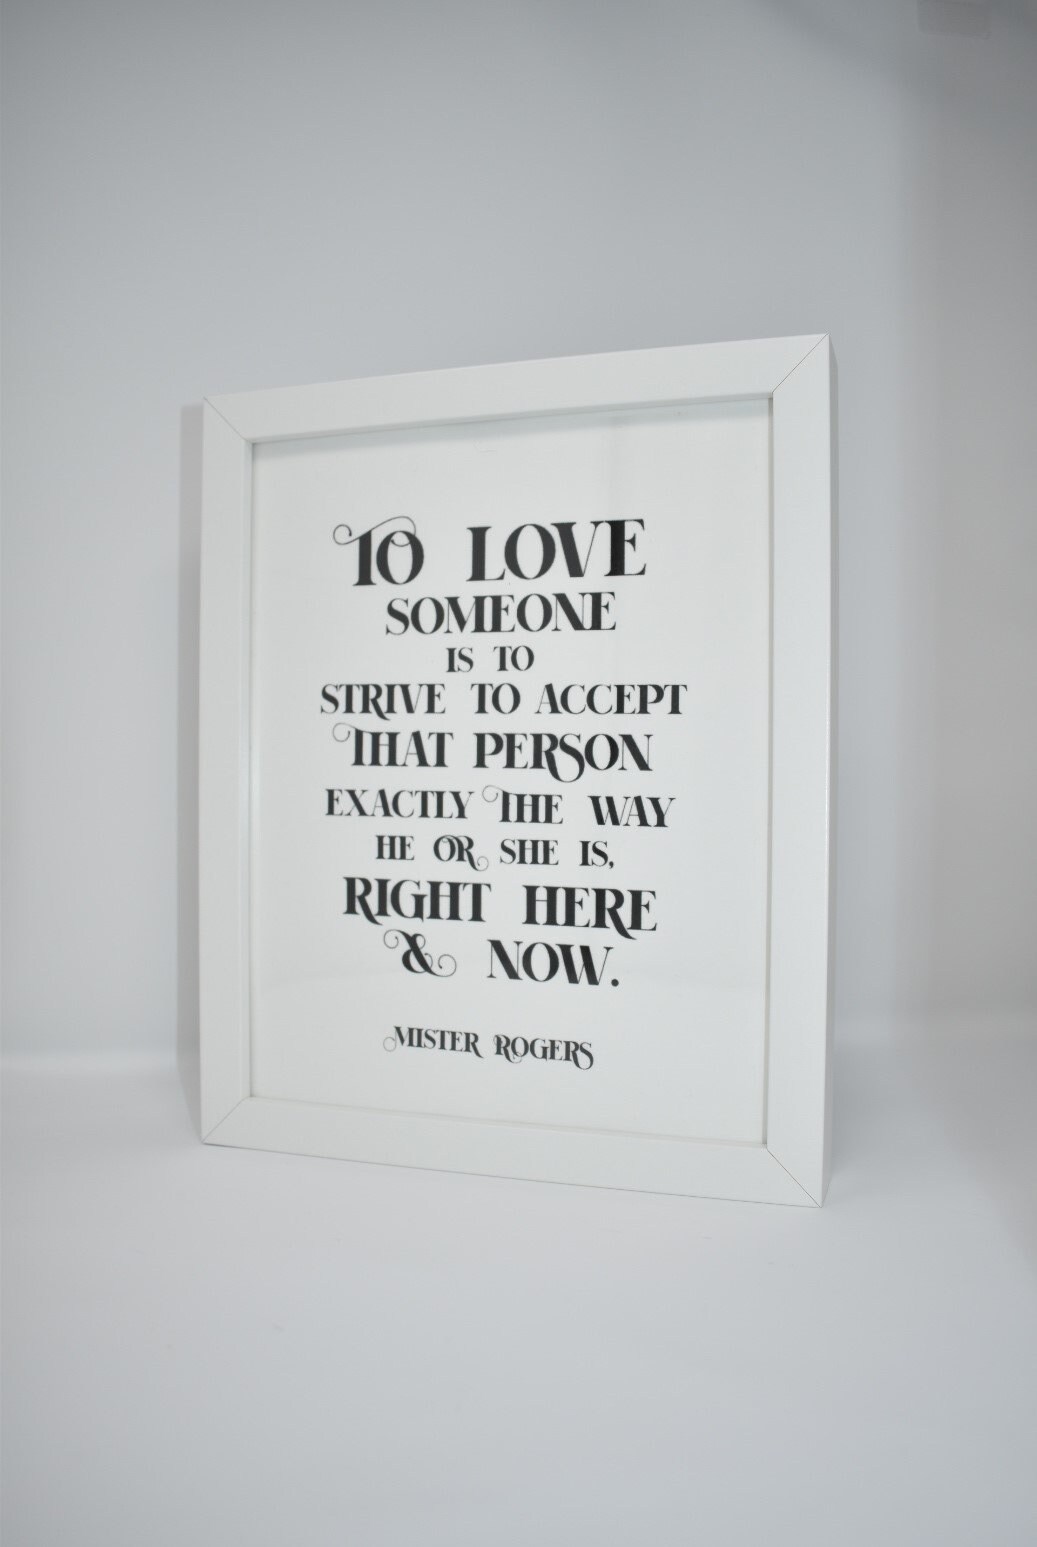 TO LOVE
SOMEONE
IS TO
STRIVE TO ACCEPT
THAT PERSON
EXACTLY THE WAY
HE OR SHE IS,
RIGHT HERE
& NOW.
MISTER ROGERS